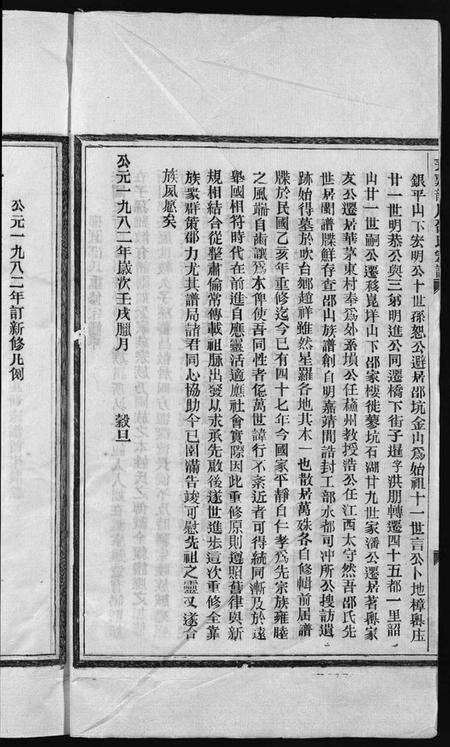 銀平山下宏明公十世孫恕公避居邵坑金山爲始祖十一世言公卜地樟輿庄
廿一世明恭公與三弟明進公同遷橋下街子暹字洪朋轉遷四十五都一里詔
山廿一世嗣公遷移崑垟山下邵家樓徙蓼坑石湖廿九世家潘公遷居著輿家
友公遷居華茅東村奉爲外系墳公任蘓州教授浩公任江西太守然吾邵氏先
世居蘭譜牒鮮存查邵山族譜創自明嘉靖間誥封工部水都司冲所公搜訪遺
跡始得墓於吹台鄉趙祥雖然星羅各地其本一也散居萬殊各自修輯前屆譜
牒於民國乙亥年重修迄今已有四十七年今國家平靜自仁孝爲先宗族雍睦
之風端自甬讓爲本俾使吾同性者傯萬世諱行不紊近者可得統同漸及於遠
舉國相符時代在前進自應靈活適應社會實際因此重修原則遵照舊律與新
規相結合從整肅倫常傳載祖脉出發以永承先啟後遂世進步這次重修全靠
族衆群策郡力尤其譜局諸君同心協助今已圓滿告竣可慰先祖之靈又遂合
族夙愿矣
公元一九八二年歲次壬戌臘月 穀旦
公元一九八二年訂新修凡例